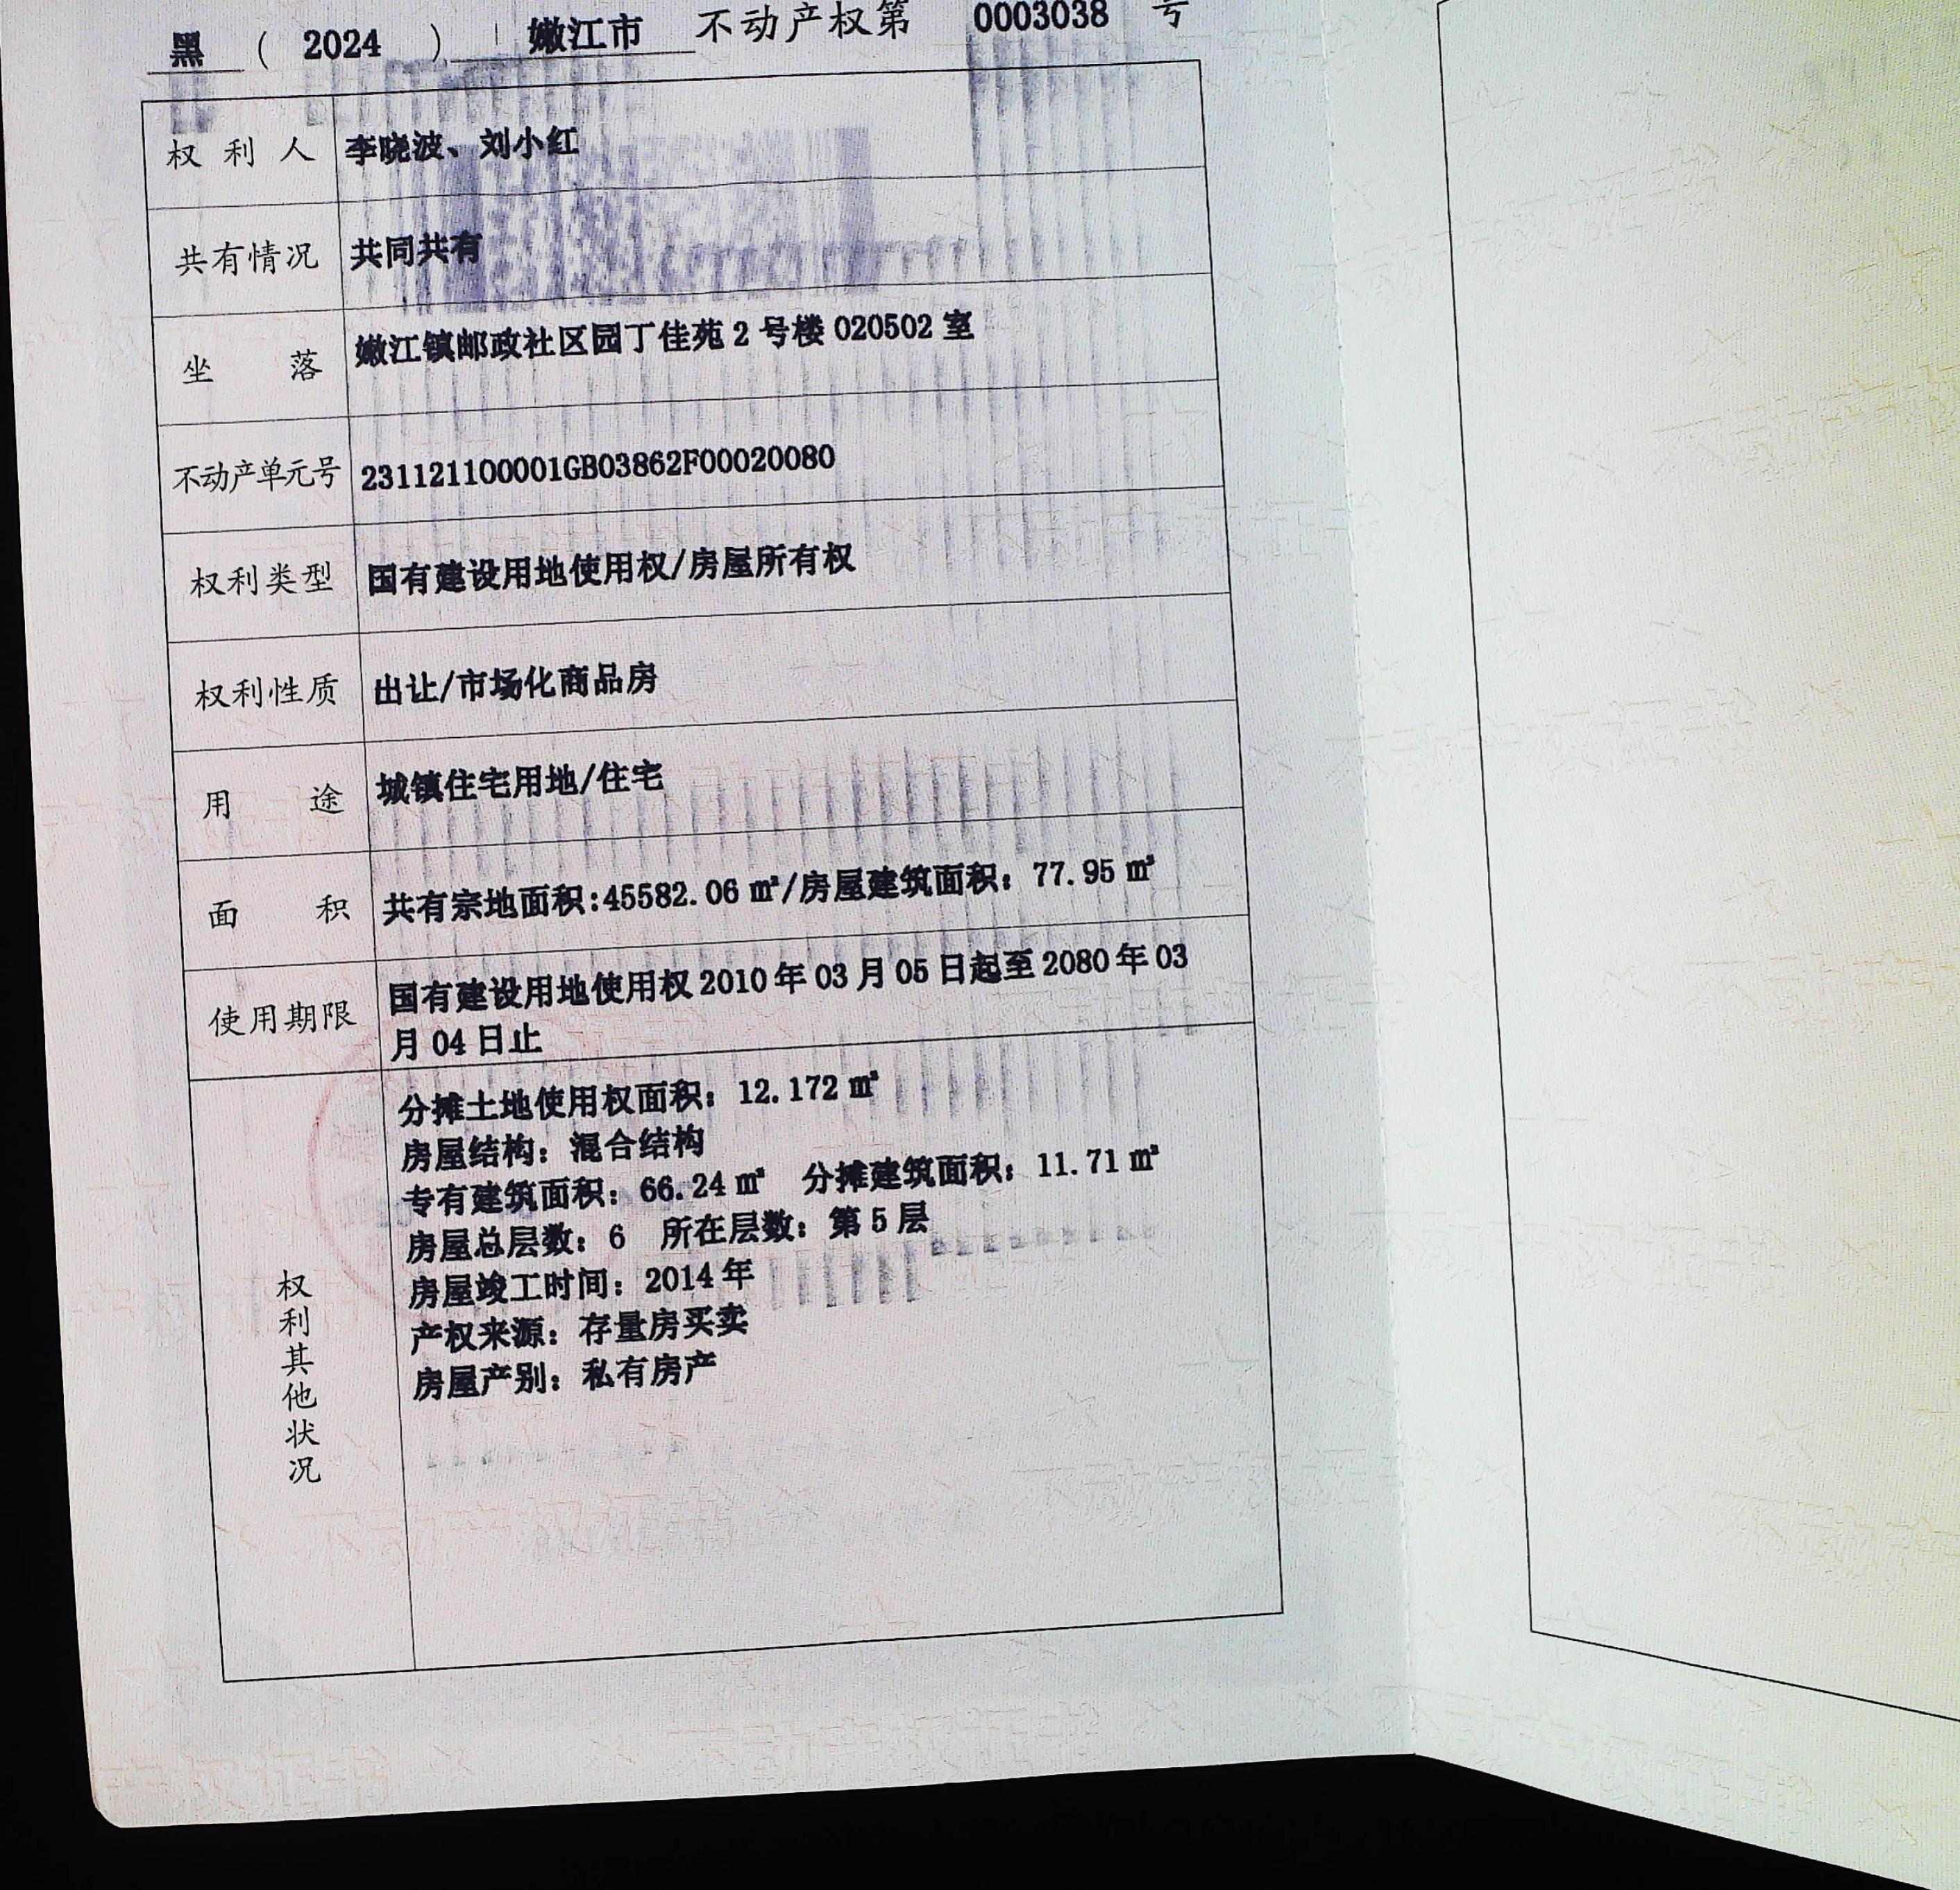 黑 ( 2024 ) 嫩江市 不动产权第 0003038 号
权利人 李晓波、刘小红
共有情况 共同共有
坐落 嫩江镇邮政社区园丁佳苑 2 号楼 020502 室
不动产单元号 231121100001GB03862F00020080
权利类型 国有建设用地使用权/房屋所有权
权利性质 出让/市场化商品房
用途 城镇住宅用地/住宅
面积 共有宗地面积:45582.06 ㎡/房屋建筑面积：77.95 ㎡
使用期限 国有建设用地使用权 2010 年 03 月 05 日起至 2080 年 03
月 04 日止
权利其他状况
分摊土地使用权面积：12.172 ㎡
房屋结构：混合结构
专有建筑面积：66.24 ㎡ 分摊建筑面积：11.71 ㎡
房屋总层数：6 所在层数：第 5 层
房屋竣工时间：2014 年
产权来源：存量房买卖
房屋产别：私有房产